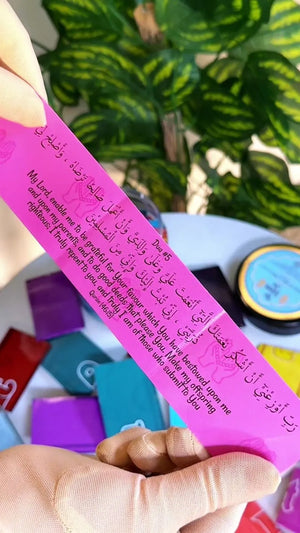 Day #5
رَبِّ أَوْزِعْنِي أَنْ أَشْكُرَ نِعْمَتَكَ الَّتِي أَنْعَمْتَ عَلَيَّ وَعَلَى وَالِدَيَّ وَأَنْ أَعْمَلَ صَالِحًا تَرْضَاهُ، وَأَصْلِحْ لِي
فِي ذُرِّيَّتِي إِنِّي تُبْتُ إِلَيْكَ وَإِنِّي مِنَ الْمُسْلِمِينَ
My Lord, enable me to be grateful for Your favour, which You have bestowed upon me
and upon my parents, and to do good deeds that please You. Make my offspring
righteous; I truly repent to you, and truly I am of those who submit to You
Quran [46:15]